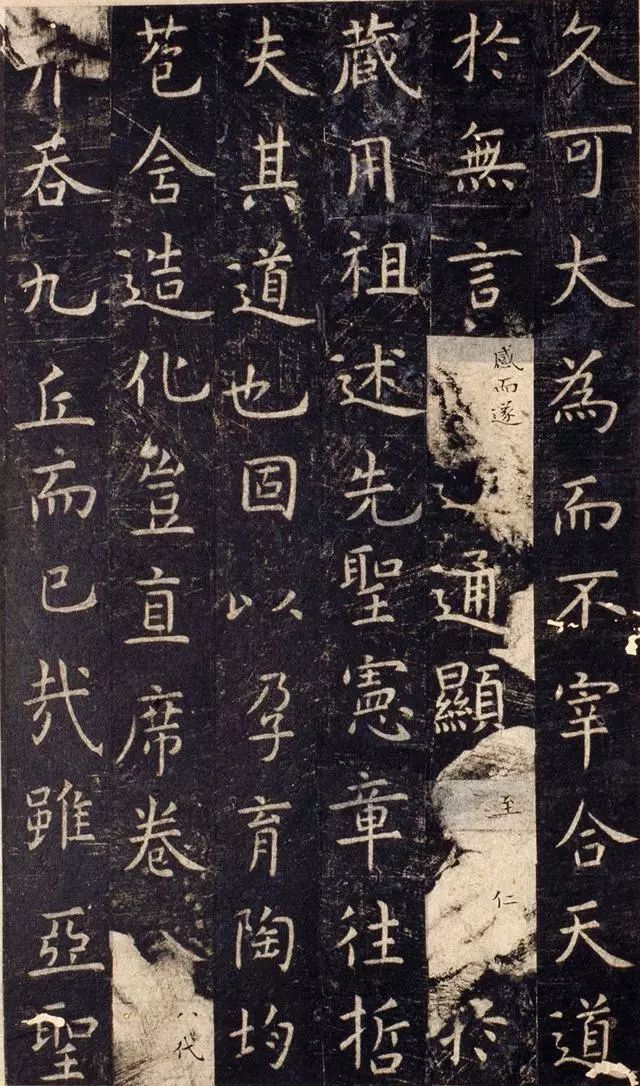 久可大為而不宰合天道
於無言感而遂通顯至仁於
蔵用祖述先聖憲章往哲
夫其道也固以孕育陶均
苞含造化豈直席卷八代
并吞九丘而已㢤雖亞聖